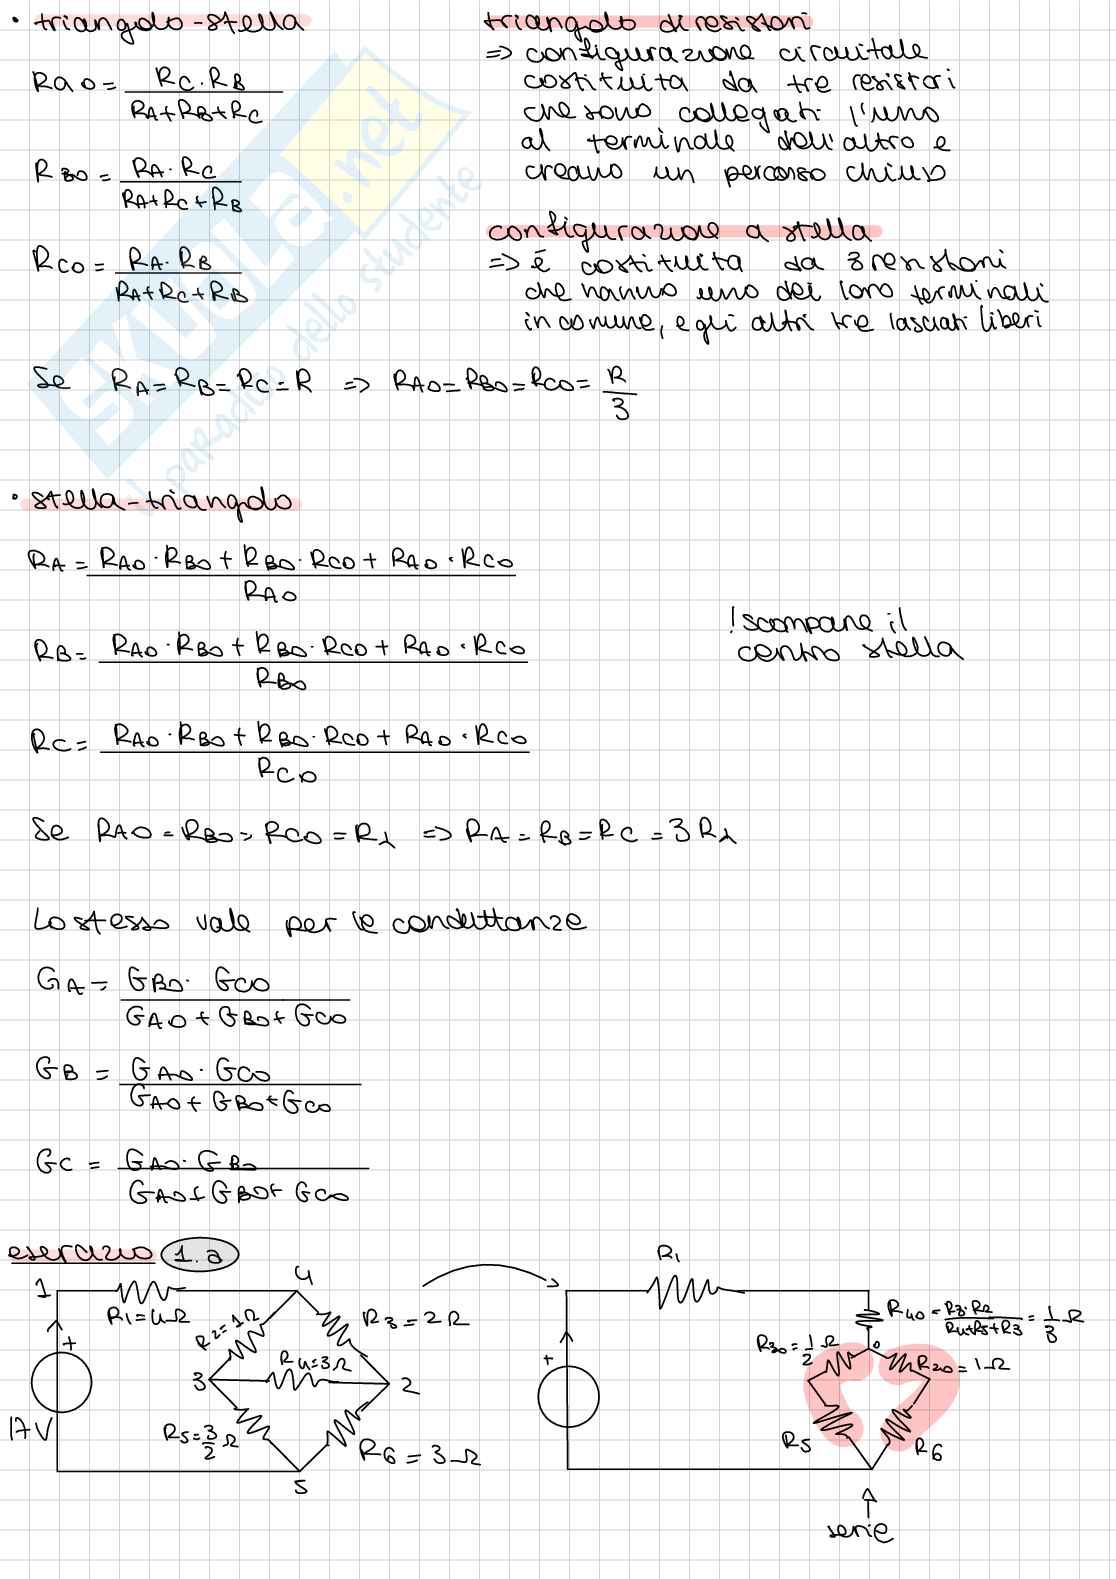 • triangolo-stella
RAO = RC·RB
RA+RB+RC
RBO = RA·RC
RA+RC+RB
RCO = RA·RB
RA+RC+RB
triangolo di resistori
=> configurazione circuitale
costituita da tre resistori
che sono collegati l'uno
al terminale dell'altro e
creano un percorso chiuso
configurazione a stella
=> è costituita da 3 resistori
che hanno uno dei loro terminali
in comune, e gli altri tre lasciati liberi
Se RA=RB=RC=R => RAO=RBO=RCO= R
3
• stella-triangolo
RA = RAO·RBO + RBO·RCO + RAO·RCO
RAO
RB = RAO·RBO + RBO·RCO + RAO·RCO
RBO
RC = RAO·RBO + RBO·RCO + RAO·RCO
RCO
! scompare il
centro stella
Se RAO = RBO = RCO = Rλ => RA = RB = RC = 3Rλ
Lo stesso vale per le conduttanze
GA = GBO· GCO
GAO + GBO + GCO
GB = GAO· GCO
GAO + GBO + GCO
GC = GAO· GBO
GAO + GBO + GCO
esercizio 1.a
1
R1=4Ω
4
R2=1Ω
R3=2Ω
3
R4=3Ω
2
+
17V
R5=3/2 Ω
R6=3Ω
5
R1
R40 = R3·R2
R4+R5+R3
= 1/3 Ω
R30=1/2 Ω
0
R20=1Ω
+
R5
R6
serie
SKUOLA.net
il paradiso dello studente